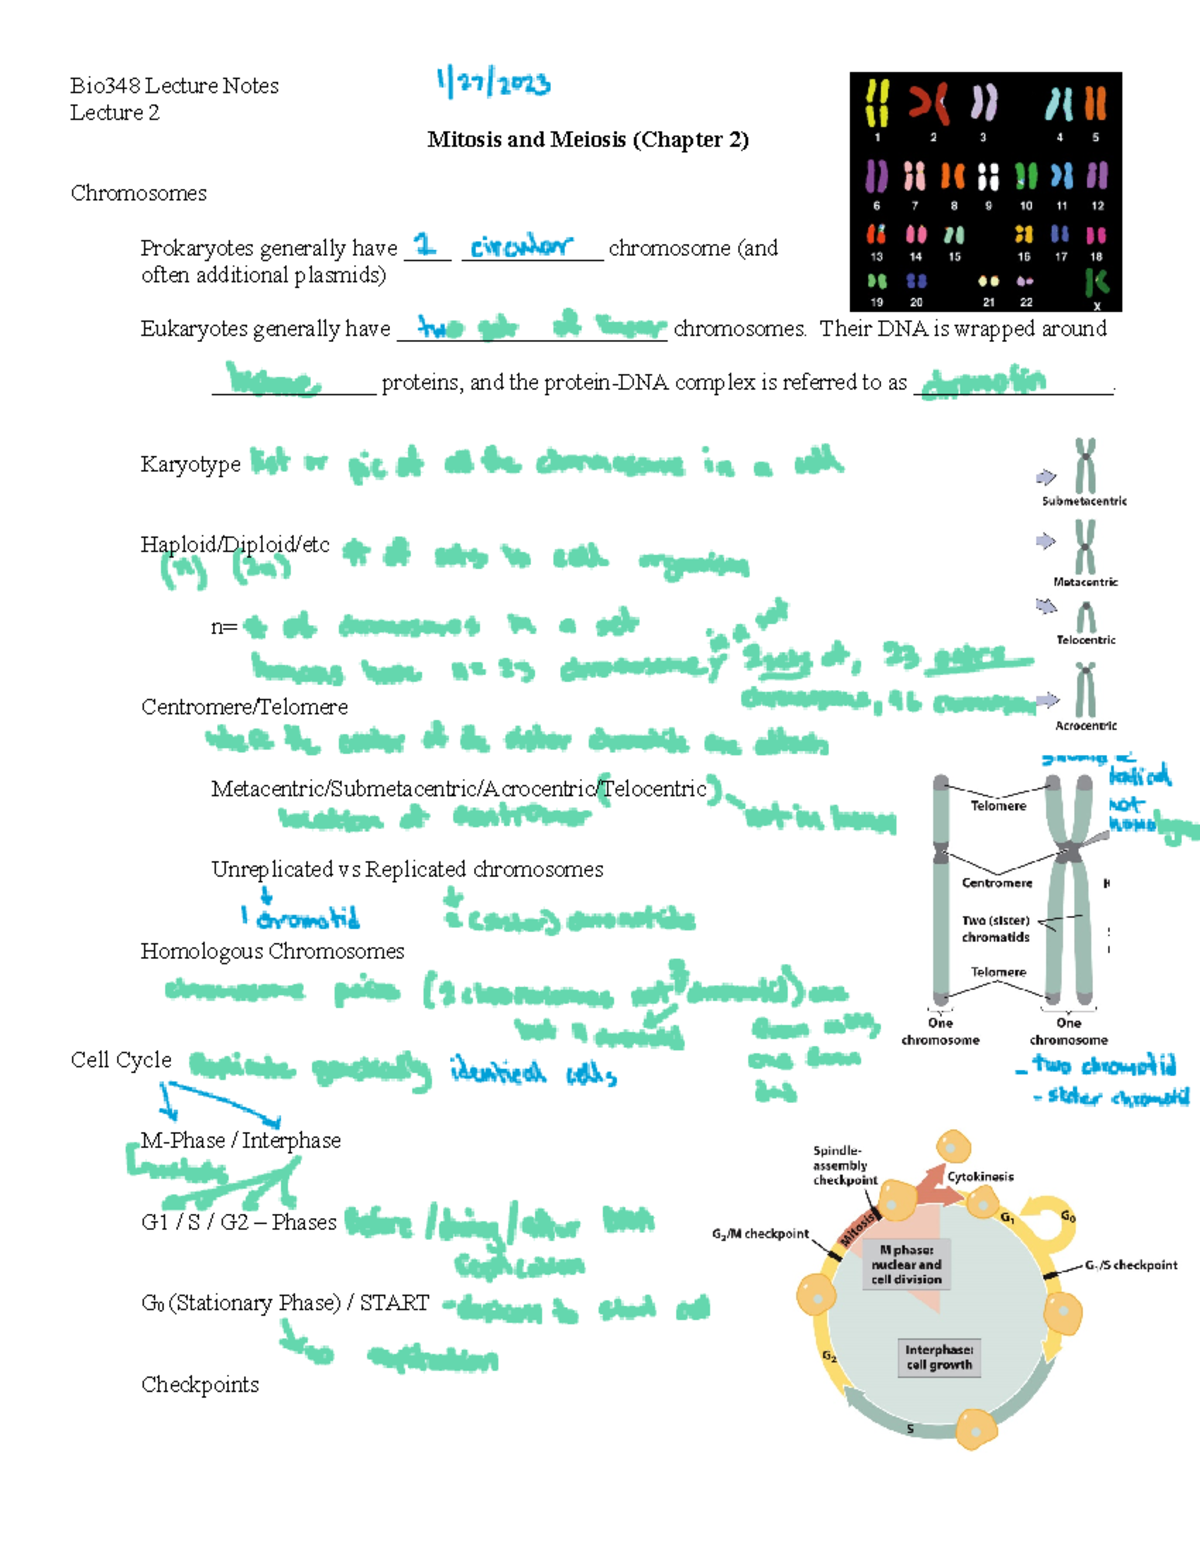 Bio348 Lecture Notes
1/27/2023
Lecture 2
Mitosis and Meiosis (Chapter 2)
1 2 3 4 5
6 7 8 9 10 11 12
13 14 15 16 17 18
19 20 21 22 X
Chromosomes
Prokaryotes generally have 1 circular chromosome (and
often additional plasmids)
Eukaryotes generally have two sets of linear chromosomes. Their DNA is wrapped around
histone proteins, and the protein-DNA complex is referred to as chromatin.
Karyotype list or pic of all the chromosome in a cell
Submetacentric
Haploid/Diploid/etc # of sets in cell organism
(n) (2n)
Metacentric
n= # of chromosomes in a set
in a set
Telocentric
humans have n = 23 chromosomes, 2 sets of, 23 pairs
chromosome, 46 chromosomes
Centromere/Telomere
Acrocentric
where the center of the sister chromatids are attach
Metacentric/Submetacentric/Acrocentric/(Telocentric)
location of centromere
not in human
Unreplicated vs Replicated chromosomes
1 chromatid
2 (sister) chromatids
not
Telomere
Centromere
Two (sister)
chromatids
Telomere
One
chromosome
One
chromosome
- two chromatid
- sister chromatid
Homologous Chromosomes
chromosome pairs (2 chromosomes not chromatid) one
from mom,
one from
dad
Cell Cycle Replicate genetically identical cells
M-Phase / Interphase
mitosis
G1 / S / G2 – Phases before / during / after DNA
replication
G0 (Stationary Phase) / START
Checkpoints
Spindle-
assembly
checkpoint
Cytokinesis
G2/M checkpoint
Mitosis
G1
G0
M phase:
nuclear and
cell division
G1/S checkpoint
Interphase:
cell growth
G2
S